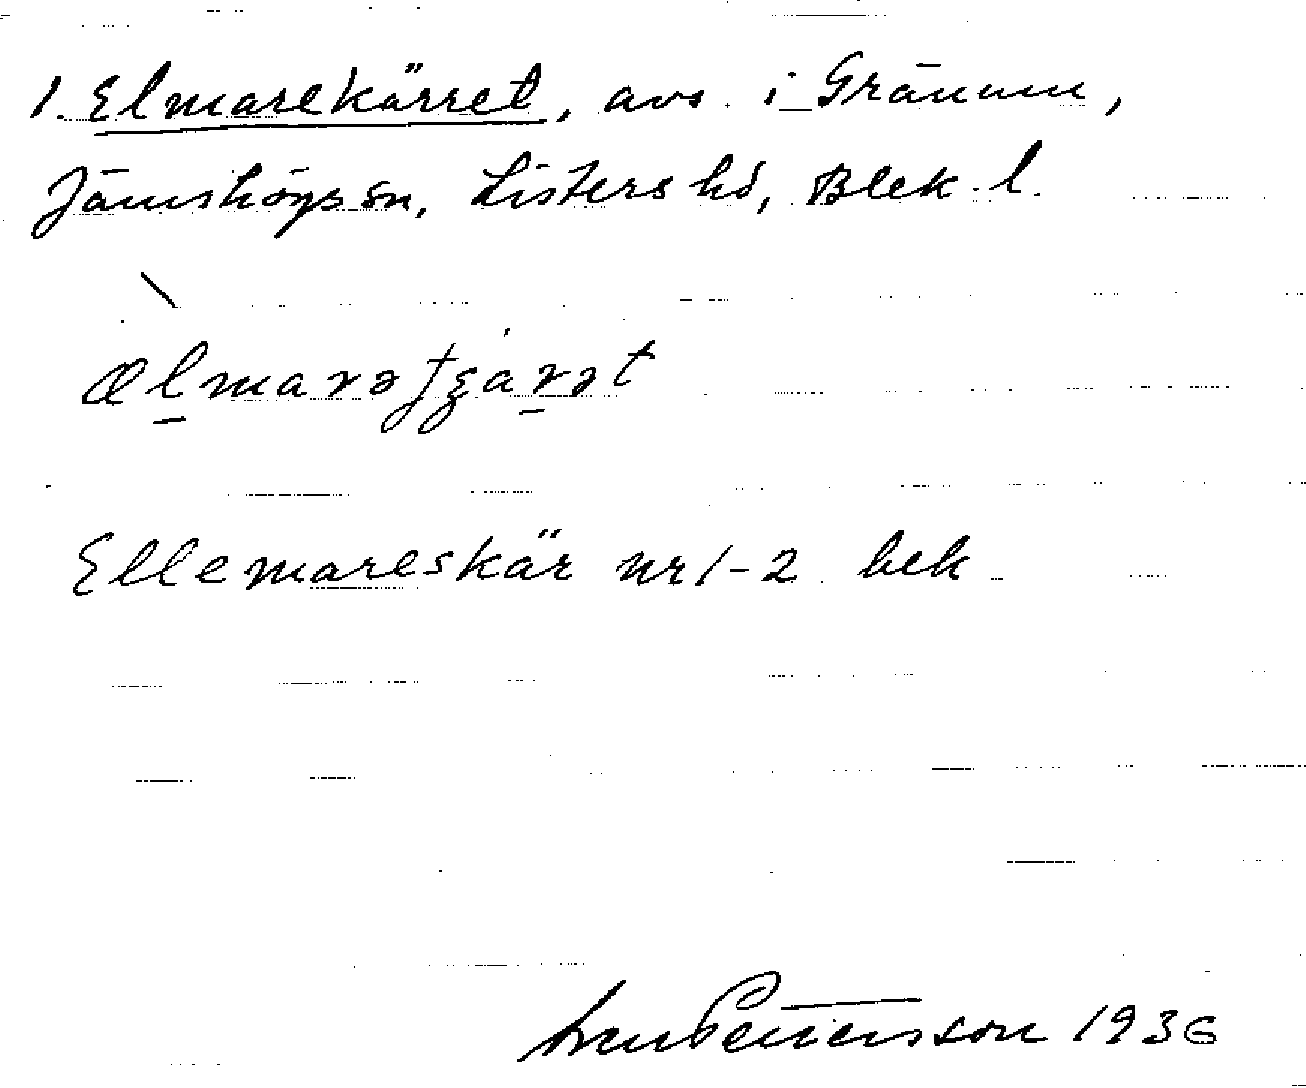 1. Elmarekärret, avs. i Gränum,
Jämshögs sn, Listers hd, Blek. l.
Ellemareskär nr 1-2 bek.
Pettersson 1936